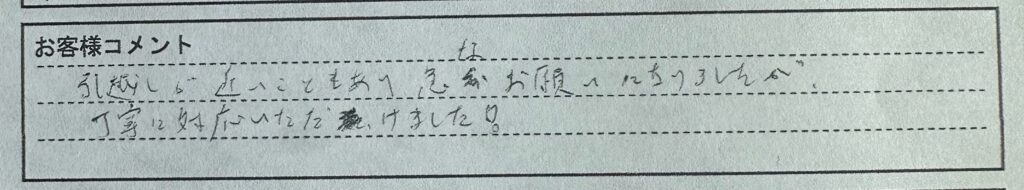 お客様コメント
引越しが近いこともあり急なお願いになりましたが、
丁寧に対応いただけました!